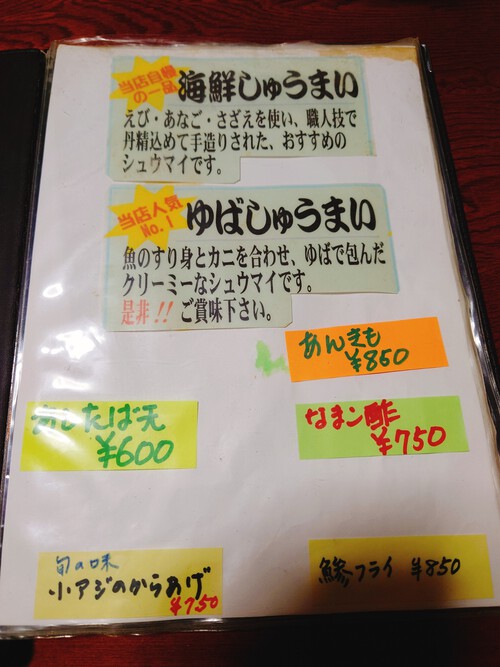 当店自慢
の一品
海鮮しゅうまい
えび・あなご・さざえを使い、職人技で
丹精込めて手造りされた、おすすめの
シュウマイです。
当店人気
No.1
ゆばしゅうまい
魚のすり身とカニを合わせ、ゆばで包んだ
クリーミーなシュウマイです。
是非!! ご賞味下さい。
あんきも
¥850
あしたば天
¥600
なまこ酢
¥750
旬の味
小アジのからあげ
¥750
フライ ¥850